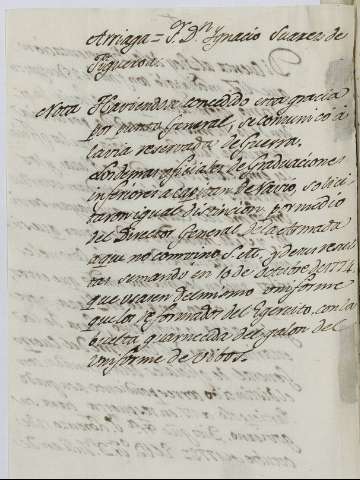 Arriaga = Sr. Dn. Ygnacio Suarez de
Figueroa.
Nota Haviendose concedido esta gracia
por punto General, se comunicó á
la via reservada de Guerra.
Los demas oficiales de Graduaciones
inferiores a Capitan de Navio, solici
taron igual distincion por medio
del Director General de la Armada
aqui no convino S. M. y de sus resul
tas se mandó en 10 de Octubre de 1774
que usasen del mismo uniforme
que los reformados del Egercito, con la
buelta guarnecida del galon del
uniforme de